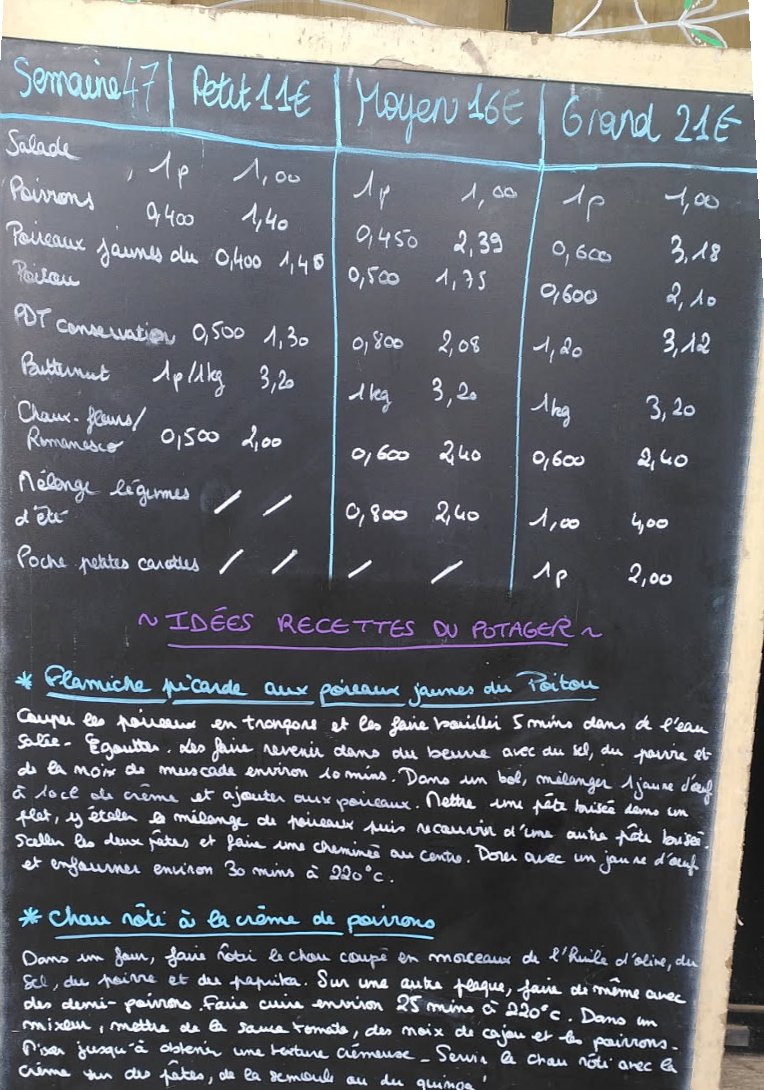 Semaine 47 | Petit 11€ | Moyen 16€ | Grand 21€
Salade 1p 1,00 1p 1,00 1p 1,00
Poivrons 0,400 1,40 0,450 2,39 0,600 3,18
Poireaux jaunes du 0,400 1,40 0,500 1,75 0,600 2,10
Poitou
PDT conservation 0,500 1,30 0,800 2,08 1,20 3,12
Butternut 1p/1kg 3,20 1kg 3,20 1kg 3,20
Choux-fleurs/
Romanesco 0,500 2,00 0,600 2,40 0,600 2,40
Mélange légumes / /
d'été 0,800 2,40 1,00 4,00
Poche petites carottes / / / / 1p 2,00
~ IDÉES RECETTES DU POTAGER ~
* Flamiche picarde aux poireaux jaunes du Poitou
Couper les poireaux en tronçons et les faire bouillir 5 mins dans de l'eau
salée - Égoutter. Les faire revenir dans du beurre avec du sel, du poivre et
de la noix de muscade environ 10 mins. Dans un bol, mélanger 1 jaune d'œuf
à 10cl de crème et ajouter aux poireaux. Mettre une pâte brisée dans un
plat, y étaler le mélange de poireaux puis recouvrir d'une autre pâte brisée.
Sceller les deux pâtes et faire une cheminée au centre. Dorer avec un jaune d'œuf
et enfourner environ 30 mins à 220°c.
* Chou rôti à la crème de poivrons
Dans un four, faire rôti le chou coupé en morceaux de l'huile d'olive, du
sel, du poivre et du paprika. Sur une autre plaque, faire de même avec
des demi-poivrons. Faire cuire environ 25 mins à 220°c. Dans un
mixeur, mettre de la sauce tomate, des noix de cajou et les poivrons -
Mixer jusqu'à obtenir une texture crémeuse - Servir le chou rôti avec la
crème sur des pâtes, de la semoule ou du quinoa !